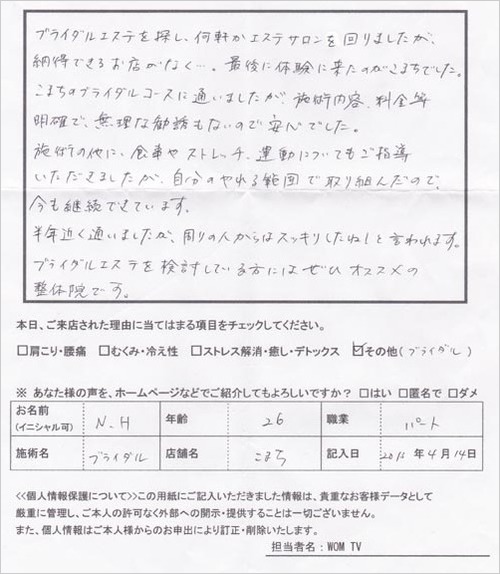 ブライダルエステを探し、何軒かエステサロンを回りましたが、
納得できるお店がなく…。最後に体験に来たのがこまちでした。
こまちのブライダルコースに通いましたが、施術内容、料金等
明確で、無理な勧誘もないので安心でした。
施術の他に、食事やストレッチ、運動についてもご指導
いただきましたが、自分のやれる範囲で取り組んだので、
今も継続できています。
半年近く通いましたが、周りの人からはスッキリしたね!と言われます。
ブライダルエステを検討している方にはぜひオススメの
整体院です。
本日、ご来店された理由に当てはまる項目をチェックしてください。
□肩こり・腰痛 □むくみ・冷え性 □ストレス解消・癒し・デトックス ☑その他(ブライダル)
※ あなた様の声を、ホームページなどでご紹介してもよろしいですか? □はい □匿名で □ダメ
お名前(イニシャル可) N.H 年齢 26 職業 パート
施術名 ブライダル 店舗名 こまち 記入日 年 4月14日
<<個人情報保護について>>この用紙にご記入いただきました情報は、貴重なお客様データとして
厳重に管理し、ご本人の許可なく外部への開示・提供することは一切ございません。
また、個人情報はご本人様からのお申出により訂正・削除いたします。
担当者名:WOM TV